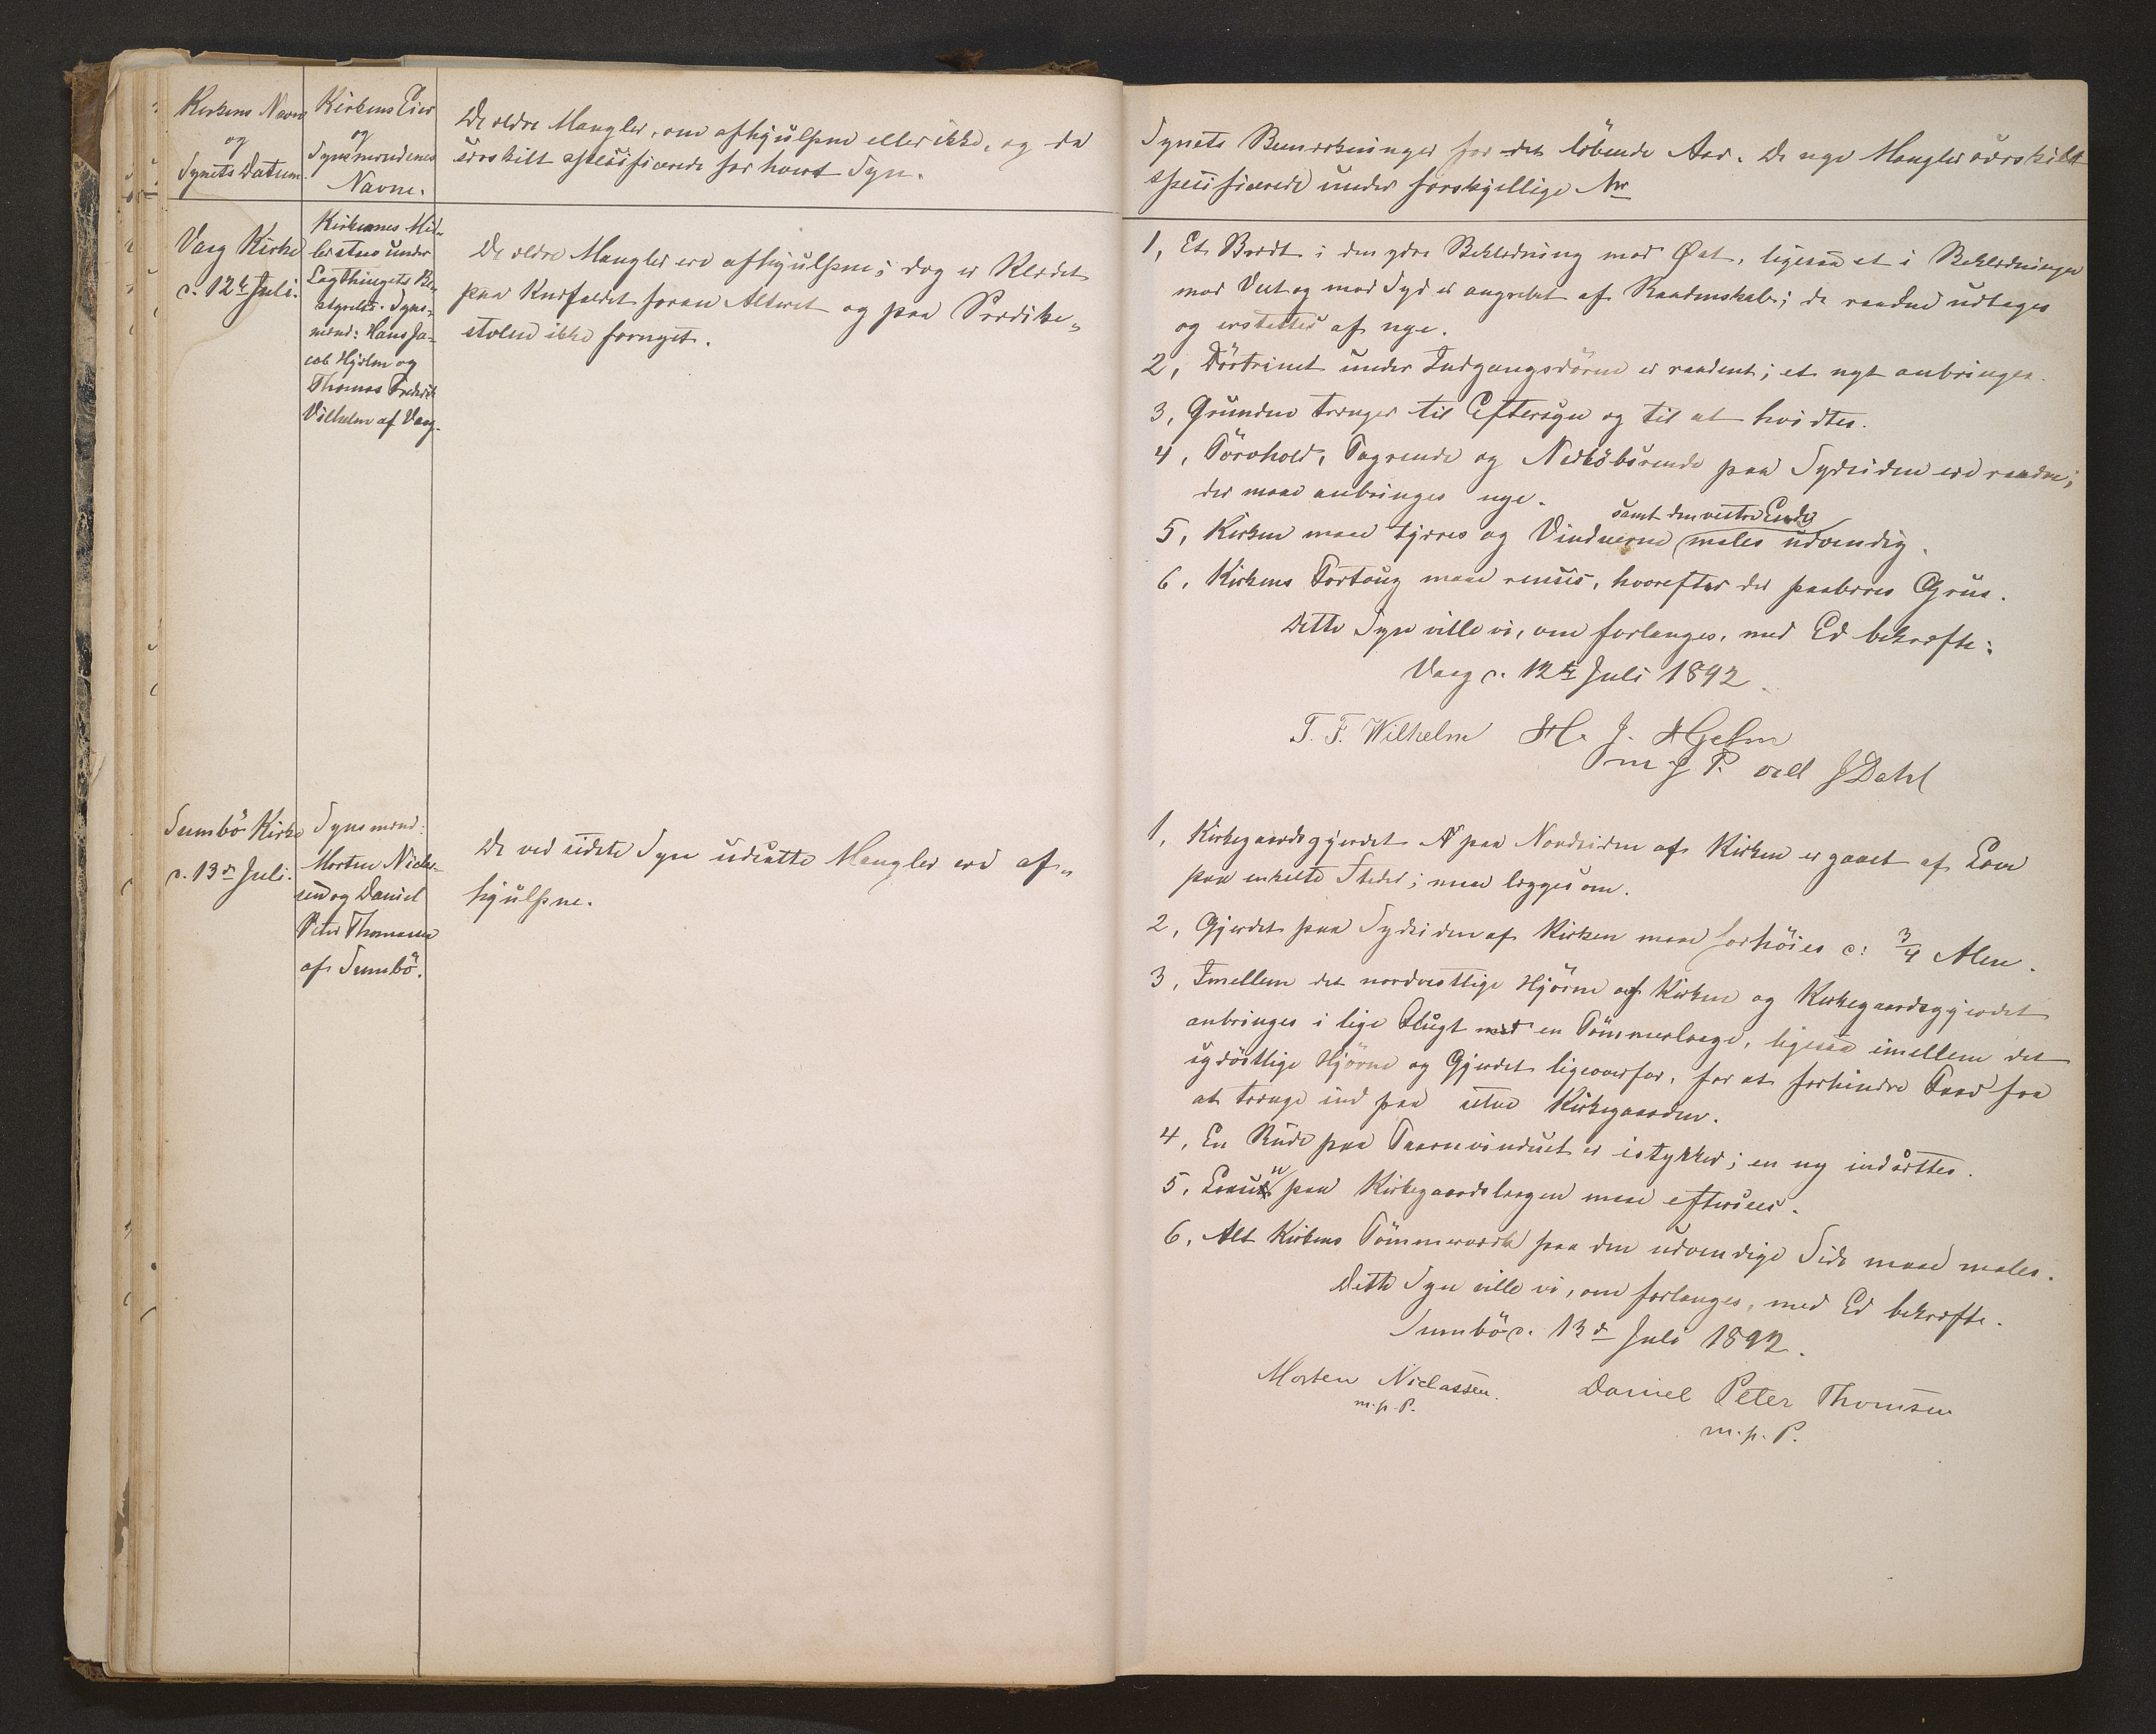 Kirkens Navn
og
Synets Datum.
Kirkens Eier
og
Synsmændenes
Navne.
De ældre Mangler, om afhjulpne eller ikke, og da
særskilt specificerede for hvert Syn.
Vaag Kirke
d. 12te Juli.
Kirkernes Mid-
ler staae under
Lagthingets Be-
styrelse. Syns-
mænd: Hans Ja-
cob Hjelm og
Thomas Frederik
Vilhelm af Vaag.
De ældre Mangler ere afhjulpne; dog er Klædet
paa Knæfaldet foran Alteret og paa Prædike-
stolen ikke fornyet.
Sumbö Kirke
d. 13de Juli.
Synsmænd:
Morten Niclas-
sen og Daniel
Peter Thomasen
af Sumbö.
De ved sidste Syn udsatte Mangler ere af-
hjulpne.
Synets Bemærkninger for det löbende Aar. De nye Mangler særskilt
specificerede under forskjellige Nr
1, Et Brædt i den ydre Beklædning mod Øst, ligesaa et i Beklædningen
mod Vest og mod Syd er angrebet af Raaddenskab; de raadne udtages
og erstattes af nye.
2, Dörtrinet under Indgangsdören er raaddent; et nyt anbringes.
3, Grunden trænger til Eftersyn og til at hvidtes.
4, Törvhold, Tagrende og Nedløbsrende paa Sydsiden ere raadne;
der maae anbringes nye.
samt den vestre Ende
5, Kirken maa tjæres og Vinduerne males udvendig.
6, Kirkens Fortoug maa renses, hvorefter der paaføres Grus.
Dette Syn ville vi, om forlanges, med Ed bekræfte.
Vaag d. 12te Juli 1892
T. F. Wilhelm H. J. Hjelm
m f P. ved J Dahl
1, Kirkegaardsgjerdet paa Nordsiden af Kirken er gaaet af Lave
paa enkelte Steder; maa lægges om.
2, Gjerdet paa Sydsiden af Kirken maa forhöies c: 3/4 Alen.
3, Imellem det nordvestlige Hjörne af Kirken og Kirkegaardsgjerdet
anbringes i lige Flugt med en Tömmerlaage, ligesaa imellem det
sydöstlige Hjörne og Gjerdet ligeoverfor, for at forhindre Faar fra
at trænge ind paa selve Kirkegaarden.
4, En Rude paa Taarnvinduet er istykker; en ny indsættes.
5, Laasen paa Kirkegaardslaagen maa eftersees.
6, Alt Kirkens Tömmerværk paa den udvendige Side maa males.
Dette Syn ville vi, om forlanges, med Ed bekræfte.
Sumbö d. 13de Juli 1892.
Morten Niclassen. Daniel Peter Thomsen
m. f. P.
m. f. P.